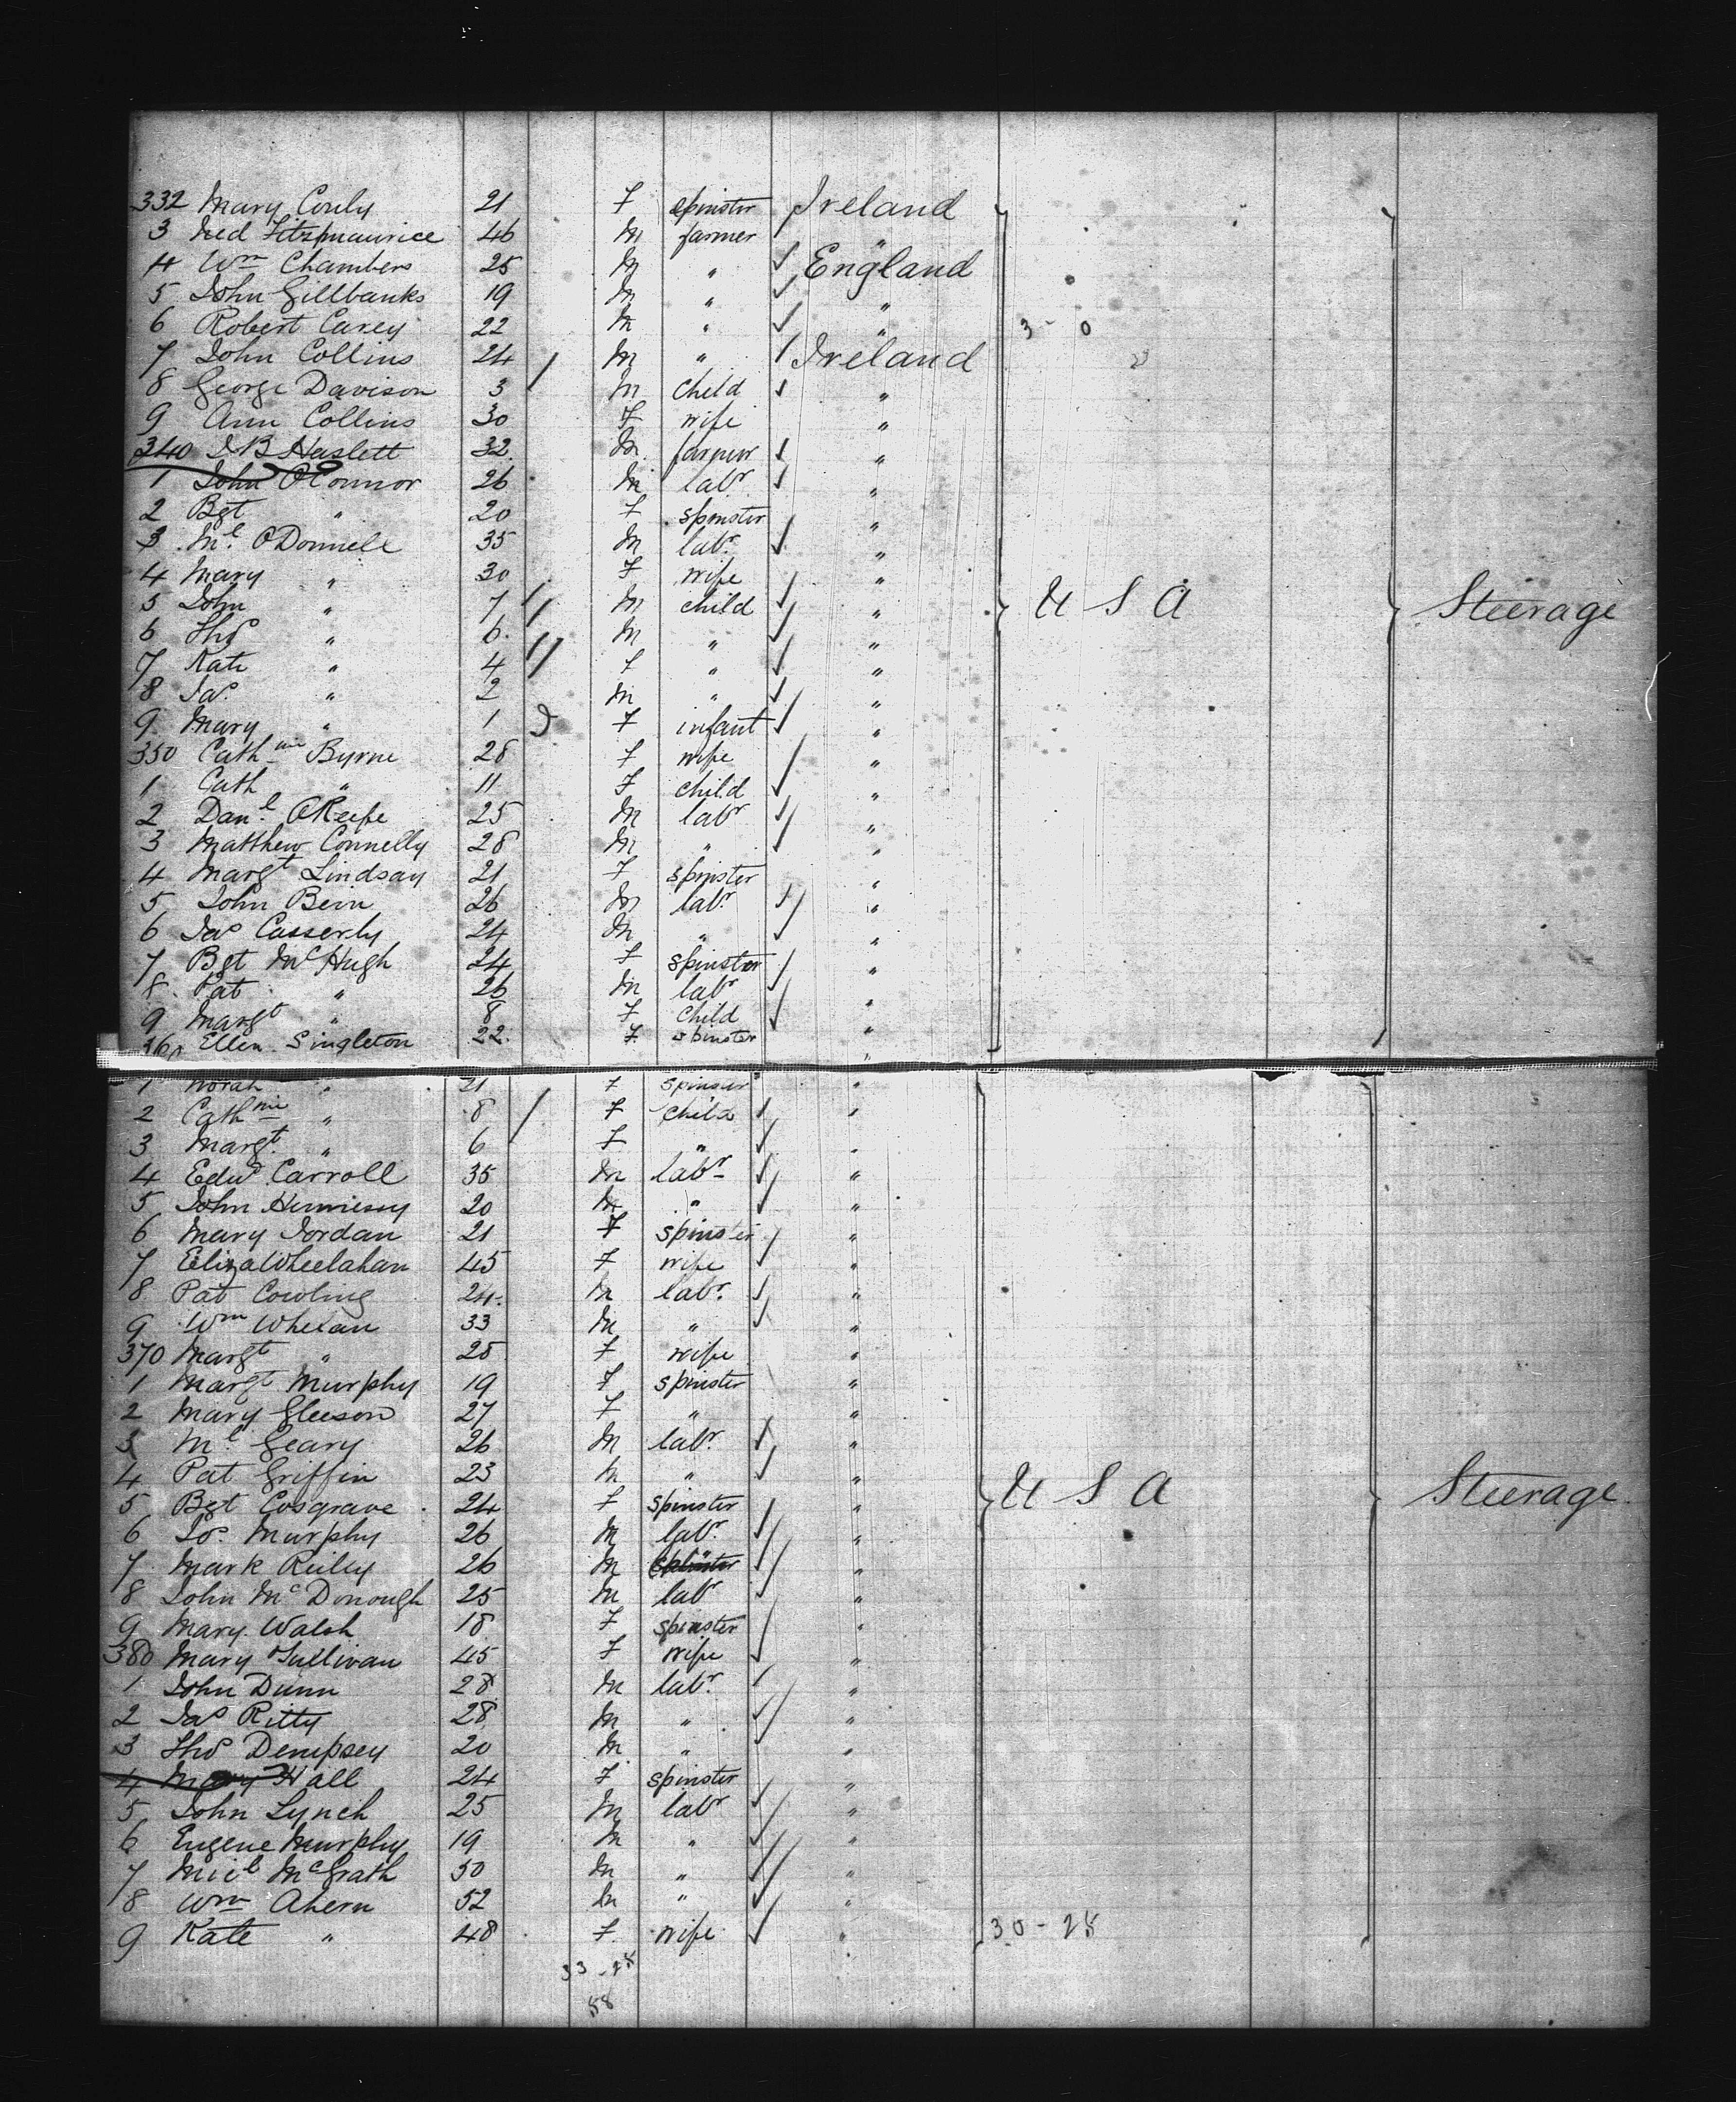 332 Mary Conly 21 F spinster Ireland
3 Ned Fitzmaurice 46 M farmer "
4 Wm Chambers 25 M " England
5 John Gillbanks 19 M " "
6 Robert Carey 22 M " " 3 - 0
7 John Collins 24 M " Ireland
8 George Davison 3 M child "
9 Ann Collins 30 F wife "
340 J B Haslett 32 M farmer "
1 John O'Connor 26 M labr "
2 Bgt " 20 F spinster "
3 Ml O'Donnell 35 M labr "
4 Mary " 30 F wife "
5 John " 7 M child " U S A Steerage
6 Thos " 6 M " "
7 Kate " 4 F " "
8 Jas " 2 M " "
9 Mary " 1 F infant "
350 Cathnie Byrne 28 F wife "
1 Cath " 11 F child "
2 Danl O'Keefe 25 M labr "
3 Matthew Connelly 28 M " "
4 Margt Lindsay 21 F spinster "
5 John Bein 26 M labr "
6 Jas Casserly 24 M " "
7 Bgt McHugh 24 F spinster "
8 Pat " 26 M labr "
9 Margt " 8 F child "
360 Ellen Singleton 22 F spinster "
1 Norah " 21 F spinster "
2 Cathnie " 8 F child "
3 Margt " 6 F " "
4 Edwd Carroll 35 M labr "
5 John Hennessy 20 M " "
6 Mary Jordan 21 F spinster "
7 Eliza Wheelahan 45 F wife "
8 Pat Cowling 24 M labr "
9 Wm Whelan 33 M " "
370 Margt " 28 F wife "
1 Margt Murphy 19 F spinster "
2 Mary Gleeson 27 F " "
3 Ml Geary 26 M labr "
4 Pat Griffin 23 M " "
5 Bgt Cosgrave 24 F spinster " U S A Steerage
6 Jos Murphy 26 M labr "
7 Mark Reilly 26 M spinster "
8 John McDonough 25 M labr "
9 Mary Walsh 18 F spinster "
380 Mary Sullivan 45 F wife "
1 John Dunn 28 M labr "
2 Jas Ritty 28 M " "
3 Thos Dempsey 20 M " "
4 Mary Hall 24 F spinster "
5 John Lynch 25 M labr "
6 Eugene Murphy 19 M " "
7 Micl McGrath 50 M " "
8 Wm Ahern 52 M " "
9 Kate " 48 F wife " 30 - 25
33 - 25
58